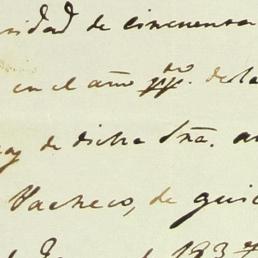 sidad de cincuenta
en el año ppdo. de la
de dicha Sra.
Pacheco, de quie
de 183